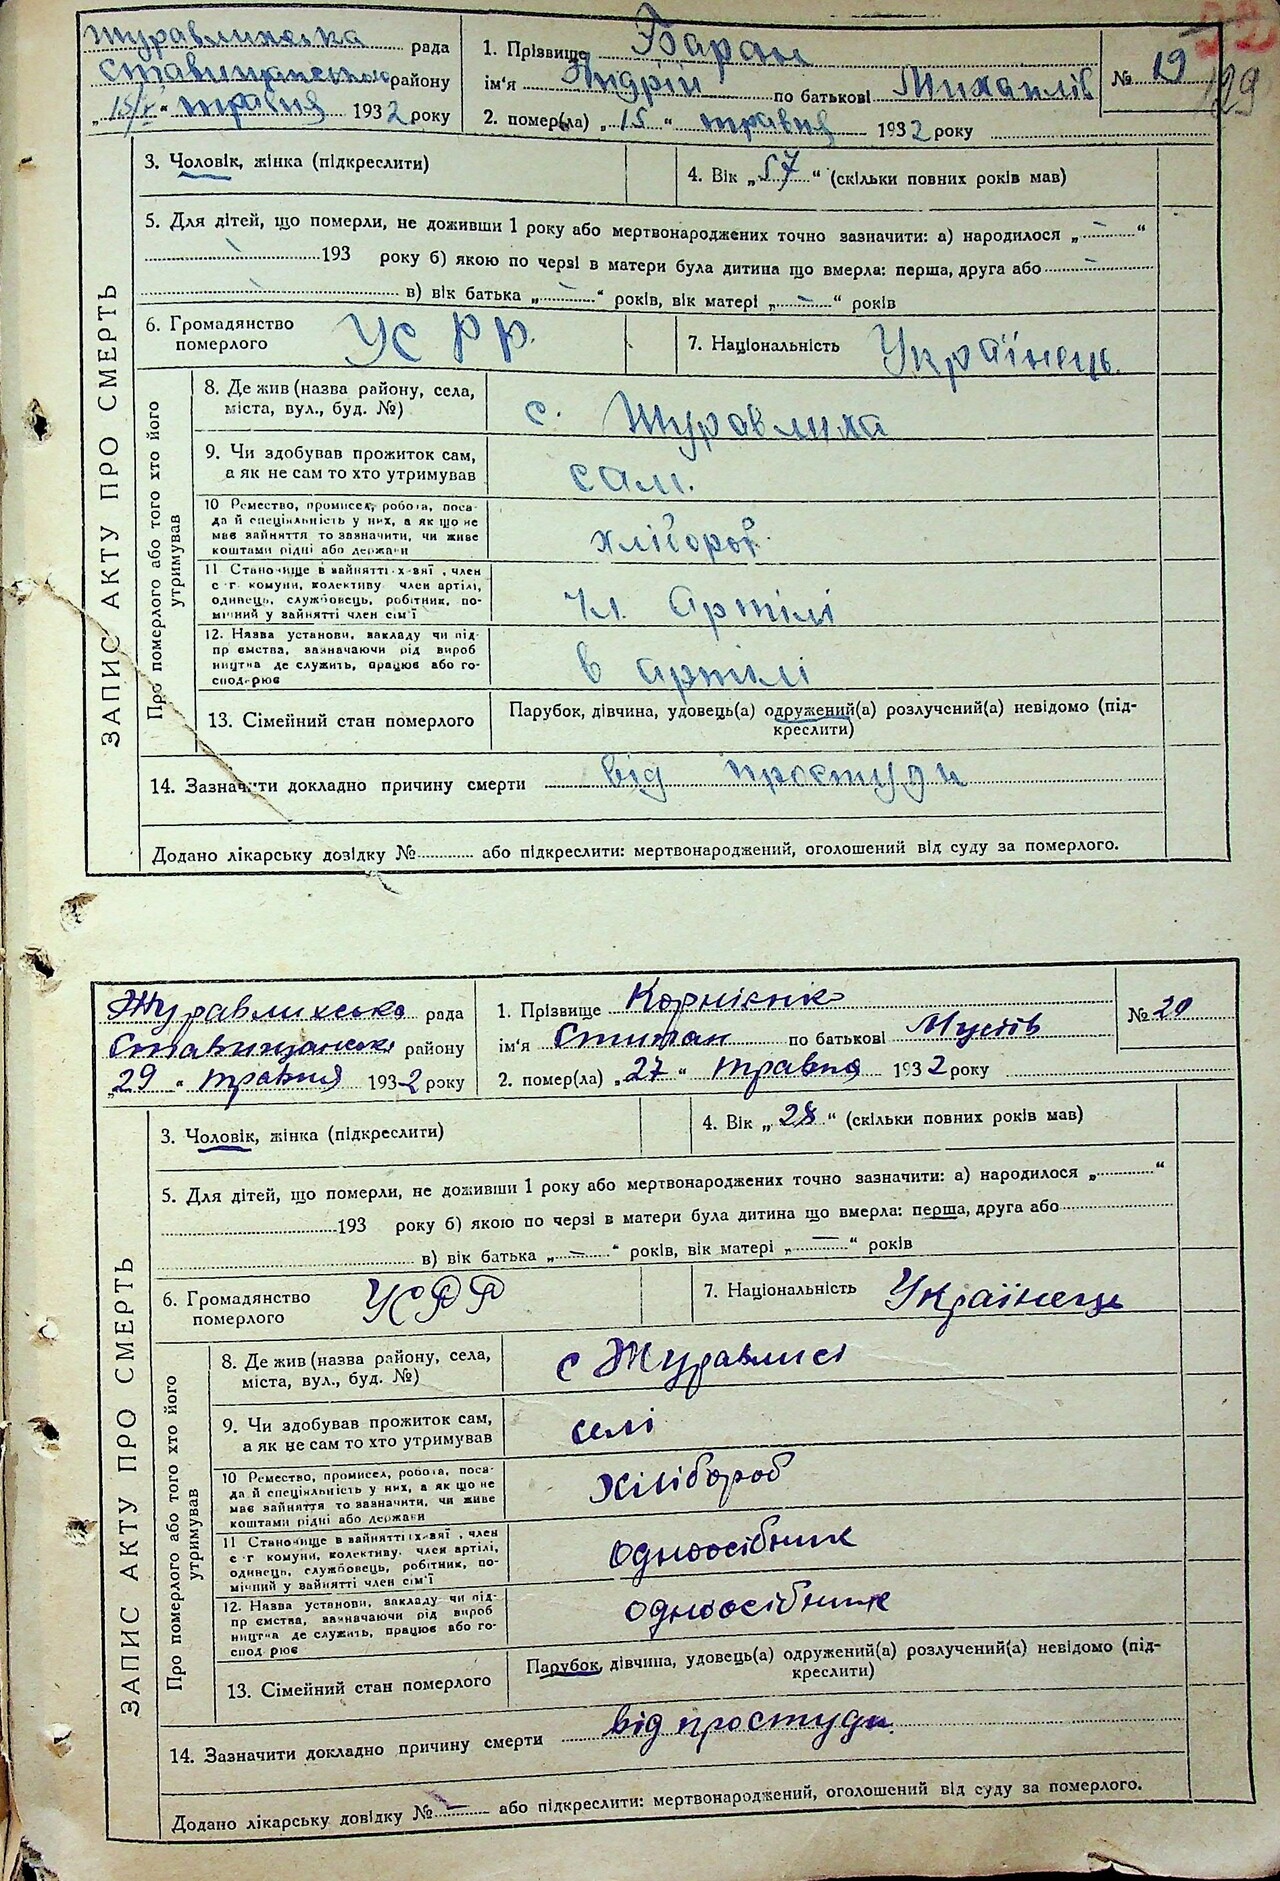 Журавлиська рада
Ставищанського району
„15/V“ травня 1932 року
1. Прізвище Баран
ім'я Андрій по батькові Михайлів
2. помер(ла) „15“ травня 1932 року
№ 19
29
ЗАПИС АКТУ ПРО СМЕРТЬ
3. Чоловік, жінка (підкреслити)
4. Вік „57“ (скільки повних років мав)
5. Для дітей, що померли, не доживши 1 року або мертвонароджених точно зазначити: а) народилося „ – “
193 року б) якою по черзі в матери була дитина що вмерла: перша, друга або –
в) вік батька „ – “ років, вік матері „ – “ років
6. Громадянство померлого УСРР.
7. Національність Українець.
Про померлого або того хто його утримував
8. Де жив (назва району, села, міста, вул., буд. №)
с. Журавлиха
9. Чи здобував прожиток сам, а як не сам то хто утримував
сам.
10 Ремество, промисел, робота, посада й спеціяльність у них, а як що не має зайняття то зазначити, чи живе коштами рідні або держави
хлібороб.
11 Становище в зайнятті х-вяї, член с-г. комуни, колективу член артілі, одинець, службовець, робітник, помічний у зайнятті член сім'ї
чл. Артілі
12. Назва установи, закладу чи підпр ємства, зазначаючи рід виробництва де служить, працює або господ-рює
в артілі
13. Сімейний стан померлого
Парубок, дівчина, удовець(а) одружений(а) розлучений(а) невідомо (підкреслити)
14. Зазначити докладно причину смерти від простуди
Додано лікарську довідку № або підкреслити: мертвонароджений, оголошений від суду за померлого.
Журавлихсько рада
району
„29“ травня 1932 року
1. Прізвище Корнієнко
ім'я по батькові
2. помер(ла) „27“ травня 1932 року
№ 20
ЗАПИС АКТУ ПРО СМЕРТЬ
3. Чоловік, жінка (підкреслити)
4. Вік „28“ (скільки повних років мав)
5. Для дітей, що померли, не доживши 1 року або мертвонароджених точно зазначити: а) народилося „ “
193 року б) якою по черзі в матери була дитина що вмерла: перша, друга або
в) вік батька „ – “ років, вік матері „ – “ років
6. Громадянство померлого УСРР
7. Національність Українець
Про померлого або того хто його утримував
8. Де жив (назва району, села, міста, вул., буд. №)
с
9. Чи здобував прожиток сам, а як не сам то хто утримував
10 Ремество, промисел, робота, посада й спеціяльність у них, а як що не має зайняття то зазначити, чи живе коштами рідні або держави
Хлібороб
11 Становище в зайнятті х-вяї, член с-г комуни, колективу. член артілі, одинець, службовець, робітник, помічний у зайнятті член сім'ї
одноосібник
12. Назва установи, закладу чи підпр ємства, зазначаючи рід виробництва де служить, працює або господ рює
одноосібник
13. Сімейний стан померлого
Парубок, дівчина, удовець(а) одружений(а) розлучений(а) невідомо (підкреслити)
14. Зазначити докладно причину смерти від простуди
Додано лікарську довідку № – або підкреслити: мертвонароджений, оголошений від суду за померлого.